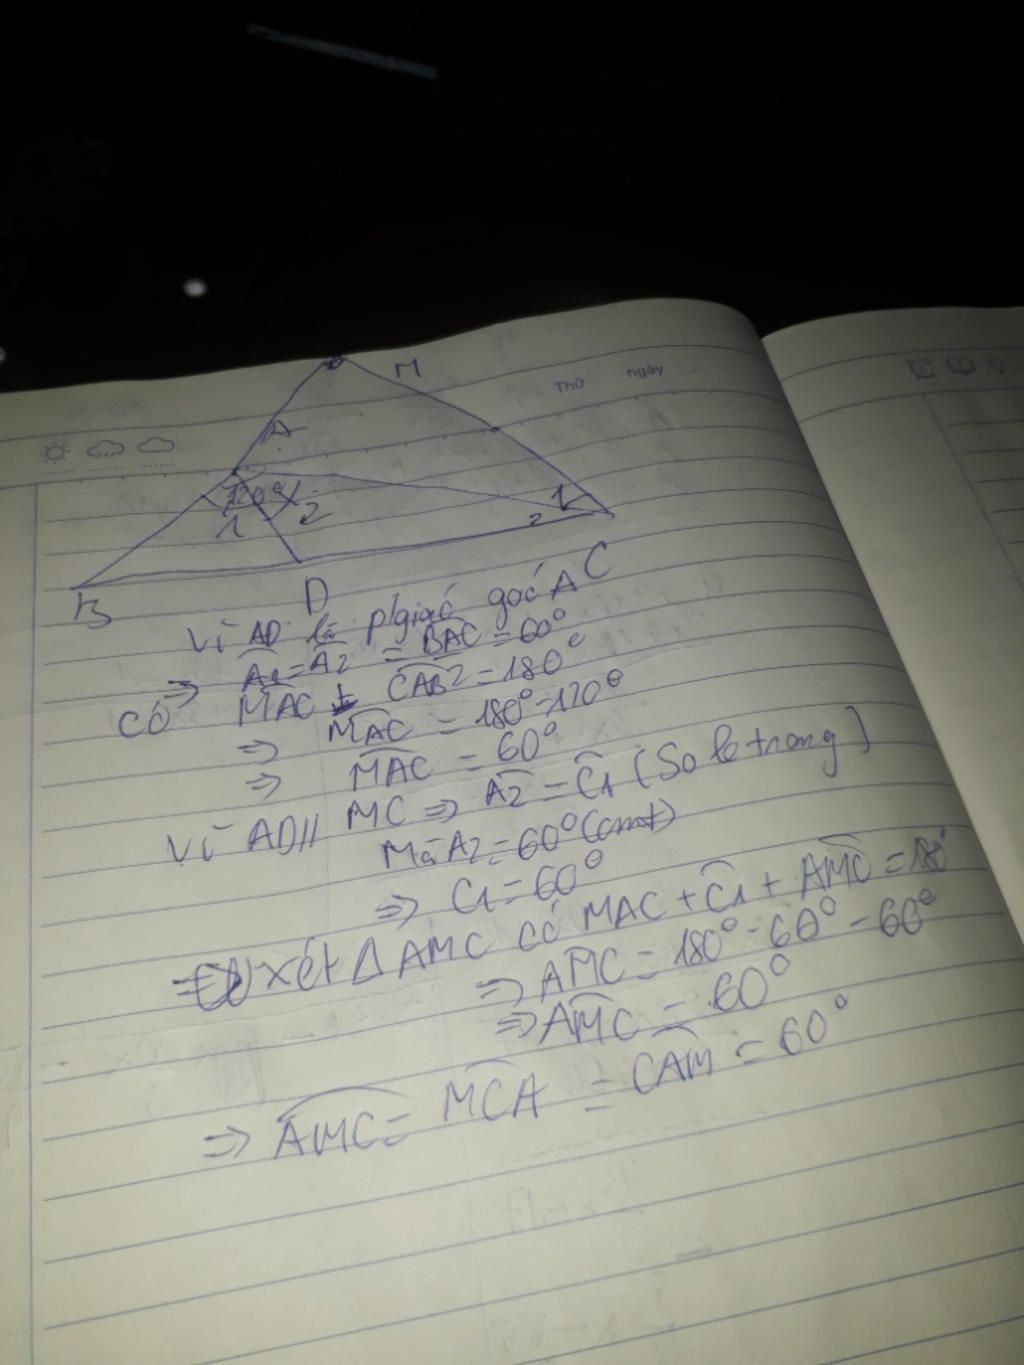 Thứ ngày
M
A
120°
1 2
1
2
B
D
C
Vì AD là p/giác góc A
⇒ A1 = A2 = BAC = 60°
CÓ MAC + CAB = 180°
⇒ MAC = 180° - 120°
⇒ MAC = 60°
Vì AD// MC ⇒ A2 = C1 (So le trong)
Mà A2 = 60° (cmt)
⇒ C1 = 60°
xét Δ AMC có MAC + C1 + AMC = 180
⇒ AMC = 180° - 60° - 60°
⇒ AMC = 60°
⇒ AMC = MCA = CAM = 60°